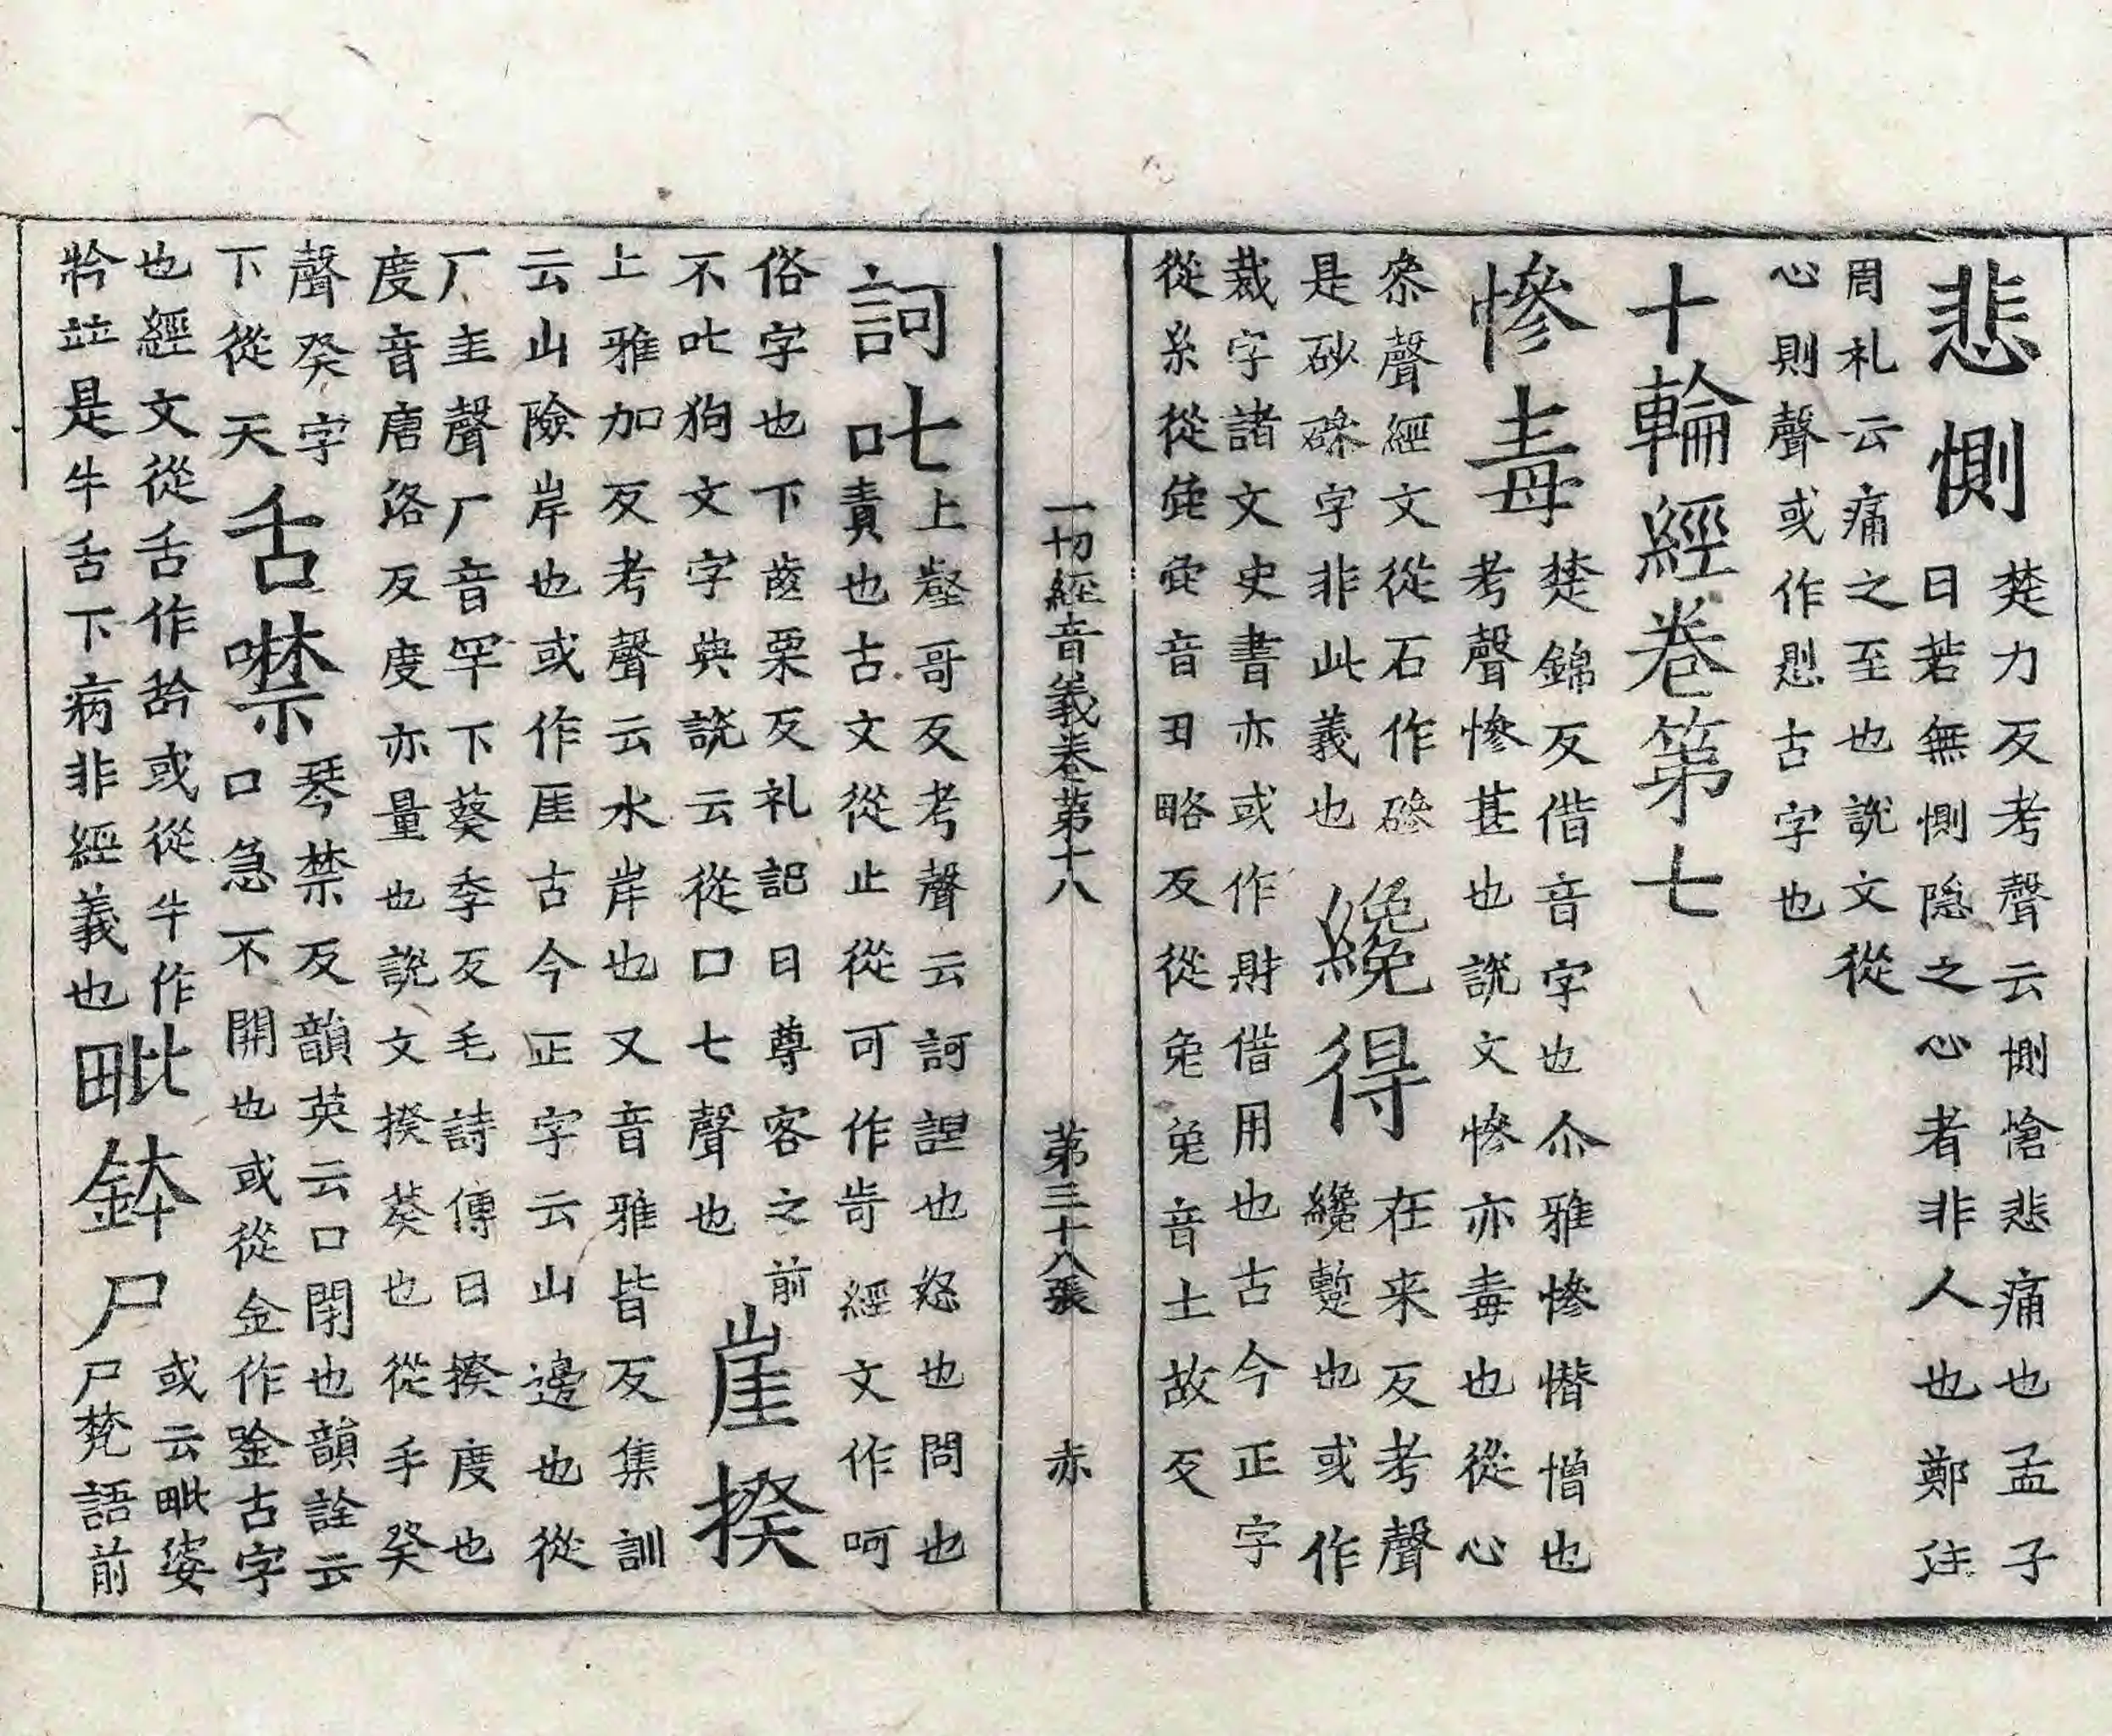 悲惻
楚力反考聲云惻愴悲痛也孟子
曰若無惻隐之心者非人也鄭注
周礼云痛之至也說文從
心則聲或作㥽古字也
十輪經卷第七
慘毒
楚錦反借音字也尒雅慘憯憎也
考聲慘甚也說文慘亦毒也從心
叅聲經文從石作磣
是砂磣字非此義也
纔得
在来反考聲
纔蹔也或作
裁字諸文史書亦或作財借用也古今正字
從糸從㲋㲋音丑略反從兔兔音土故反
一切經音義卷第十八 第三十八張 赤
訶叱
上壑哥反考聲云訶也怒也問也
責也古文從止從可作經文作呵
俗字也下齒栗反礼記曰尊客之前
不叱狗文字典說云從口七聲也
崖揆
上雅加反考聲云水岸也又音雅皆反集訓
云山險岸也或作厓古今正字云山邊也從
厂圭聲厂音罕下葵季反毛詩傳曰揆度也
度音唐洛反度亦量也說文揆葵也從手癸
聲癸字
下從天
舌噤
琴禁反韻英云口閉也韻詮云
口急不開也或從金作古字
也經文從舌作或從牛作
並是牛舌下病非經義也
毗鉢尸
或云毗婆
尸梵語前